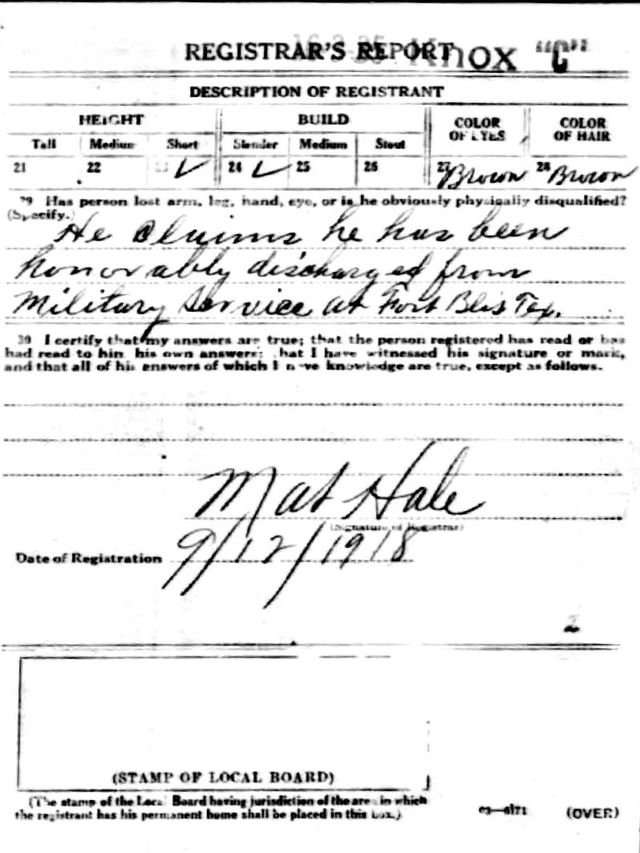 REGISTRAR'S REPORT Knox "C"
DESCRIPTION OF REGISTRANT
HEIGHT BUILD COLOR OF EYES COLOR OF HAIR
Tall Medium Short Slender Medium Stout
21 22 ✓ 24 ✓ 25 26 27 Brown 28 Brown
29 Has person lost arm, leg, hand, eye, or is he obviously physically disqualified?
(Specify.)
He Claims he has been
honorably discharged from
Military Service at Fort Blis Tex.
30 I certify that my answers are true; that the person registered has read or has
had read to him his own answers; that I have witnessed his signature or mark,
and that all of his answers of which I have knowledge are true, except as follows.
Mat Hale
(Signature of Registrar)
Date of Registration 9/12/1918
(STAMP OF LOCAL BOARD)
(The stamp of the Local Board having jurisdiction of the area in which
the registrant has his permanent home shall be placed in this box.)
03—6171 (OVER)